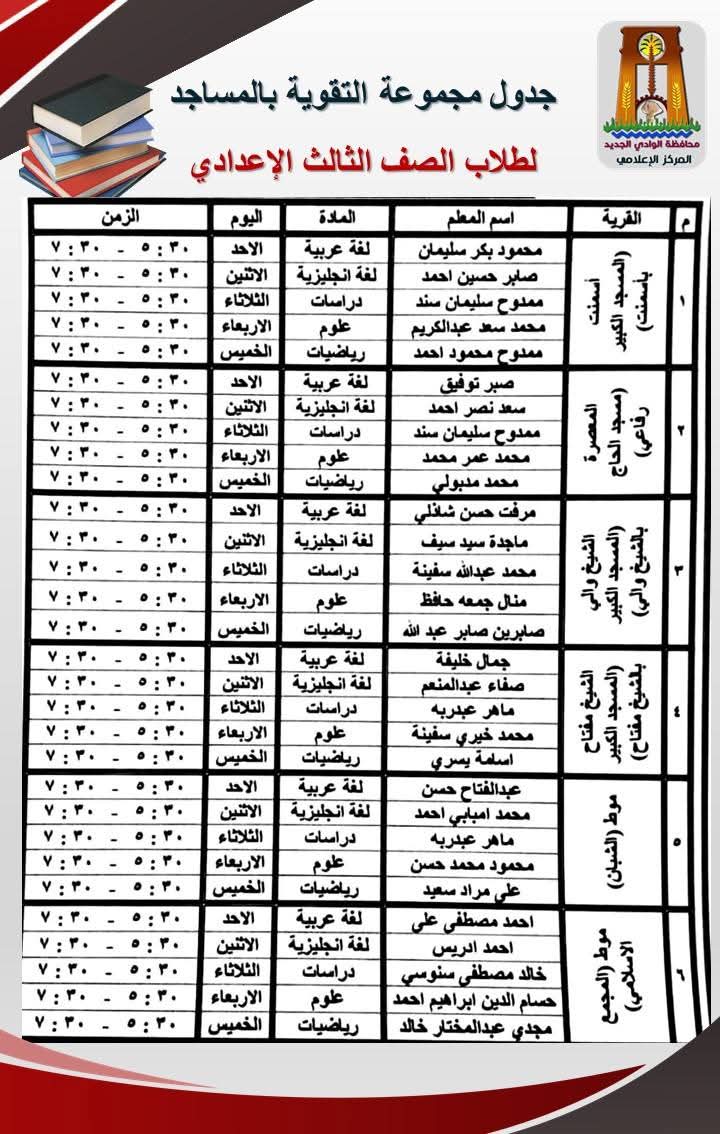 جدول مجموعة التقوية بالمساجد
لطلاب الصف الثالث الإعدادي
محافظة الوادي الجديد
المركز الإعلامي
م القرية اسم المعلم المادة اليوم الزمن
١ أسمنت (المسجد الكبير بأسمنت)
محمود بكر سليمان لغة عربية الاحد ٥:٣٠ - ٧:٣٠
صابر حسين احمد لغة انجليزية الاثنين ٥:٣٠ - ٧:٣٠
ممدوح سليمان سند دراسات الثلاثاء ٥:٣٠ - ٧:٣٠
محمد سعد عبدالكريم علوم الاربعاء ٥:٣٠ - ٧:٣٠
ممدوح محمود احمد رياضيات الخميس ٥:٣٠ - ٧:٣٠
٢ المعصرة (مسجد الحاج رفاعي)
صبر توفيق لغة عربية الاحد ٥:٣٠ - ٧:٣٠
سعد نصر احمد لغة انجليزية الاثنين ٥:٣٠ - ٧:٣٠
ممدوح سليمان سند دراسات الثلاثاء ٥:٣٠ - ٧:٣٠
محمد عمر محمد علوم الاربعاء ٥:٣٠ - ٧:٣٠
محمد مدبولي رياضيات الخميس ٥:٣٠ - ٧:٣٠
٣ الشيخ والي (المسجد الكبير بالشيخ والي)
مرفت حسن شاذلي لغة عربية الاحد ٥:٣٠ - ٧:٣٠
ماجدة سيد سيف لغة انجليزية الاثنين ٥:٣٠ - ٧:٣٠
محمد عبدالله سفينة دراسات الثلاثاء ٥:٣٠ - ٧:٣٠
منال جمعه حافظ علوم الاربعاء ٥:٣٠ - ٧:٣٠
صابرين صابر عبد الله رياضيات الخميس ٥:٣٠ - ٧:٣٠
٤ الشيخ مفتاح (المسجد الكبير بالشيخ مفتاح)
جمال خليفة لغة عربية الاحد ٥:٣٠ - ٧:٣٠
صفاء عبدالمنعم لغة انجليزية الاثنين ٥:٣٠ - ٧:٣٠
ماهر عبدربه دراسات الثلاثاء ٥:٣٠ - ٧:٣٠
محمد خيري سفينة علوم الاربعاء ٥:٣٠ - ٧:٣٠
اسامة يسري رياضيات الخميس ٥:٣٠ - ٧:٣٠
٥ موط (الشبان)
عبدالفتاح حسن لغة عربية الاحد ٥:٣٠ - ٧:٣٠
محمد امبابي احمد لغة انجليزية الاثنين ٥:٣٠ - ٧:٣٠
ماهر عبدربه دراسات الثلاثاء ٥:٣٠ - ٧:٣٠
محمود محمد حسن علوم الاربعاء ٥:٣٠ - ٧:٣٠
علي مراد سعيد رياضيات الخميس ٥:٣٠ - ٧:٣٠
٦ موط (المجمع الاسلامي)
احمد مصطفى على لغة عربية الاحد ٥:٣٠ - ٧:٣٠
احمد ادريس لغة انجليزية الاثنين ٥:٣٠ - ٧:٣٠
خالد مصطفى سنوسي دراسات الثلاثاء ٥:٣٠ - ٧:٣٠
حسام الدين ابراهيم احمد علوم الاربعاء ٥:٣٠ - ٧:٣٠
مجدي عبدالمختار خالد رياضيات الخميس ٥:٣٠ - ٧:٣٠